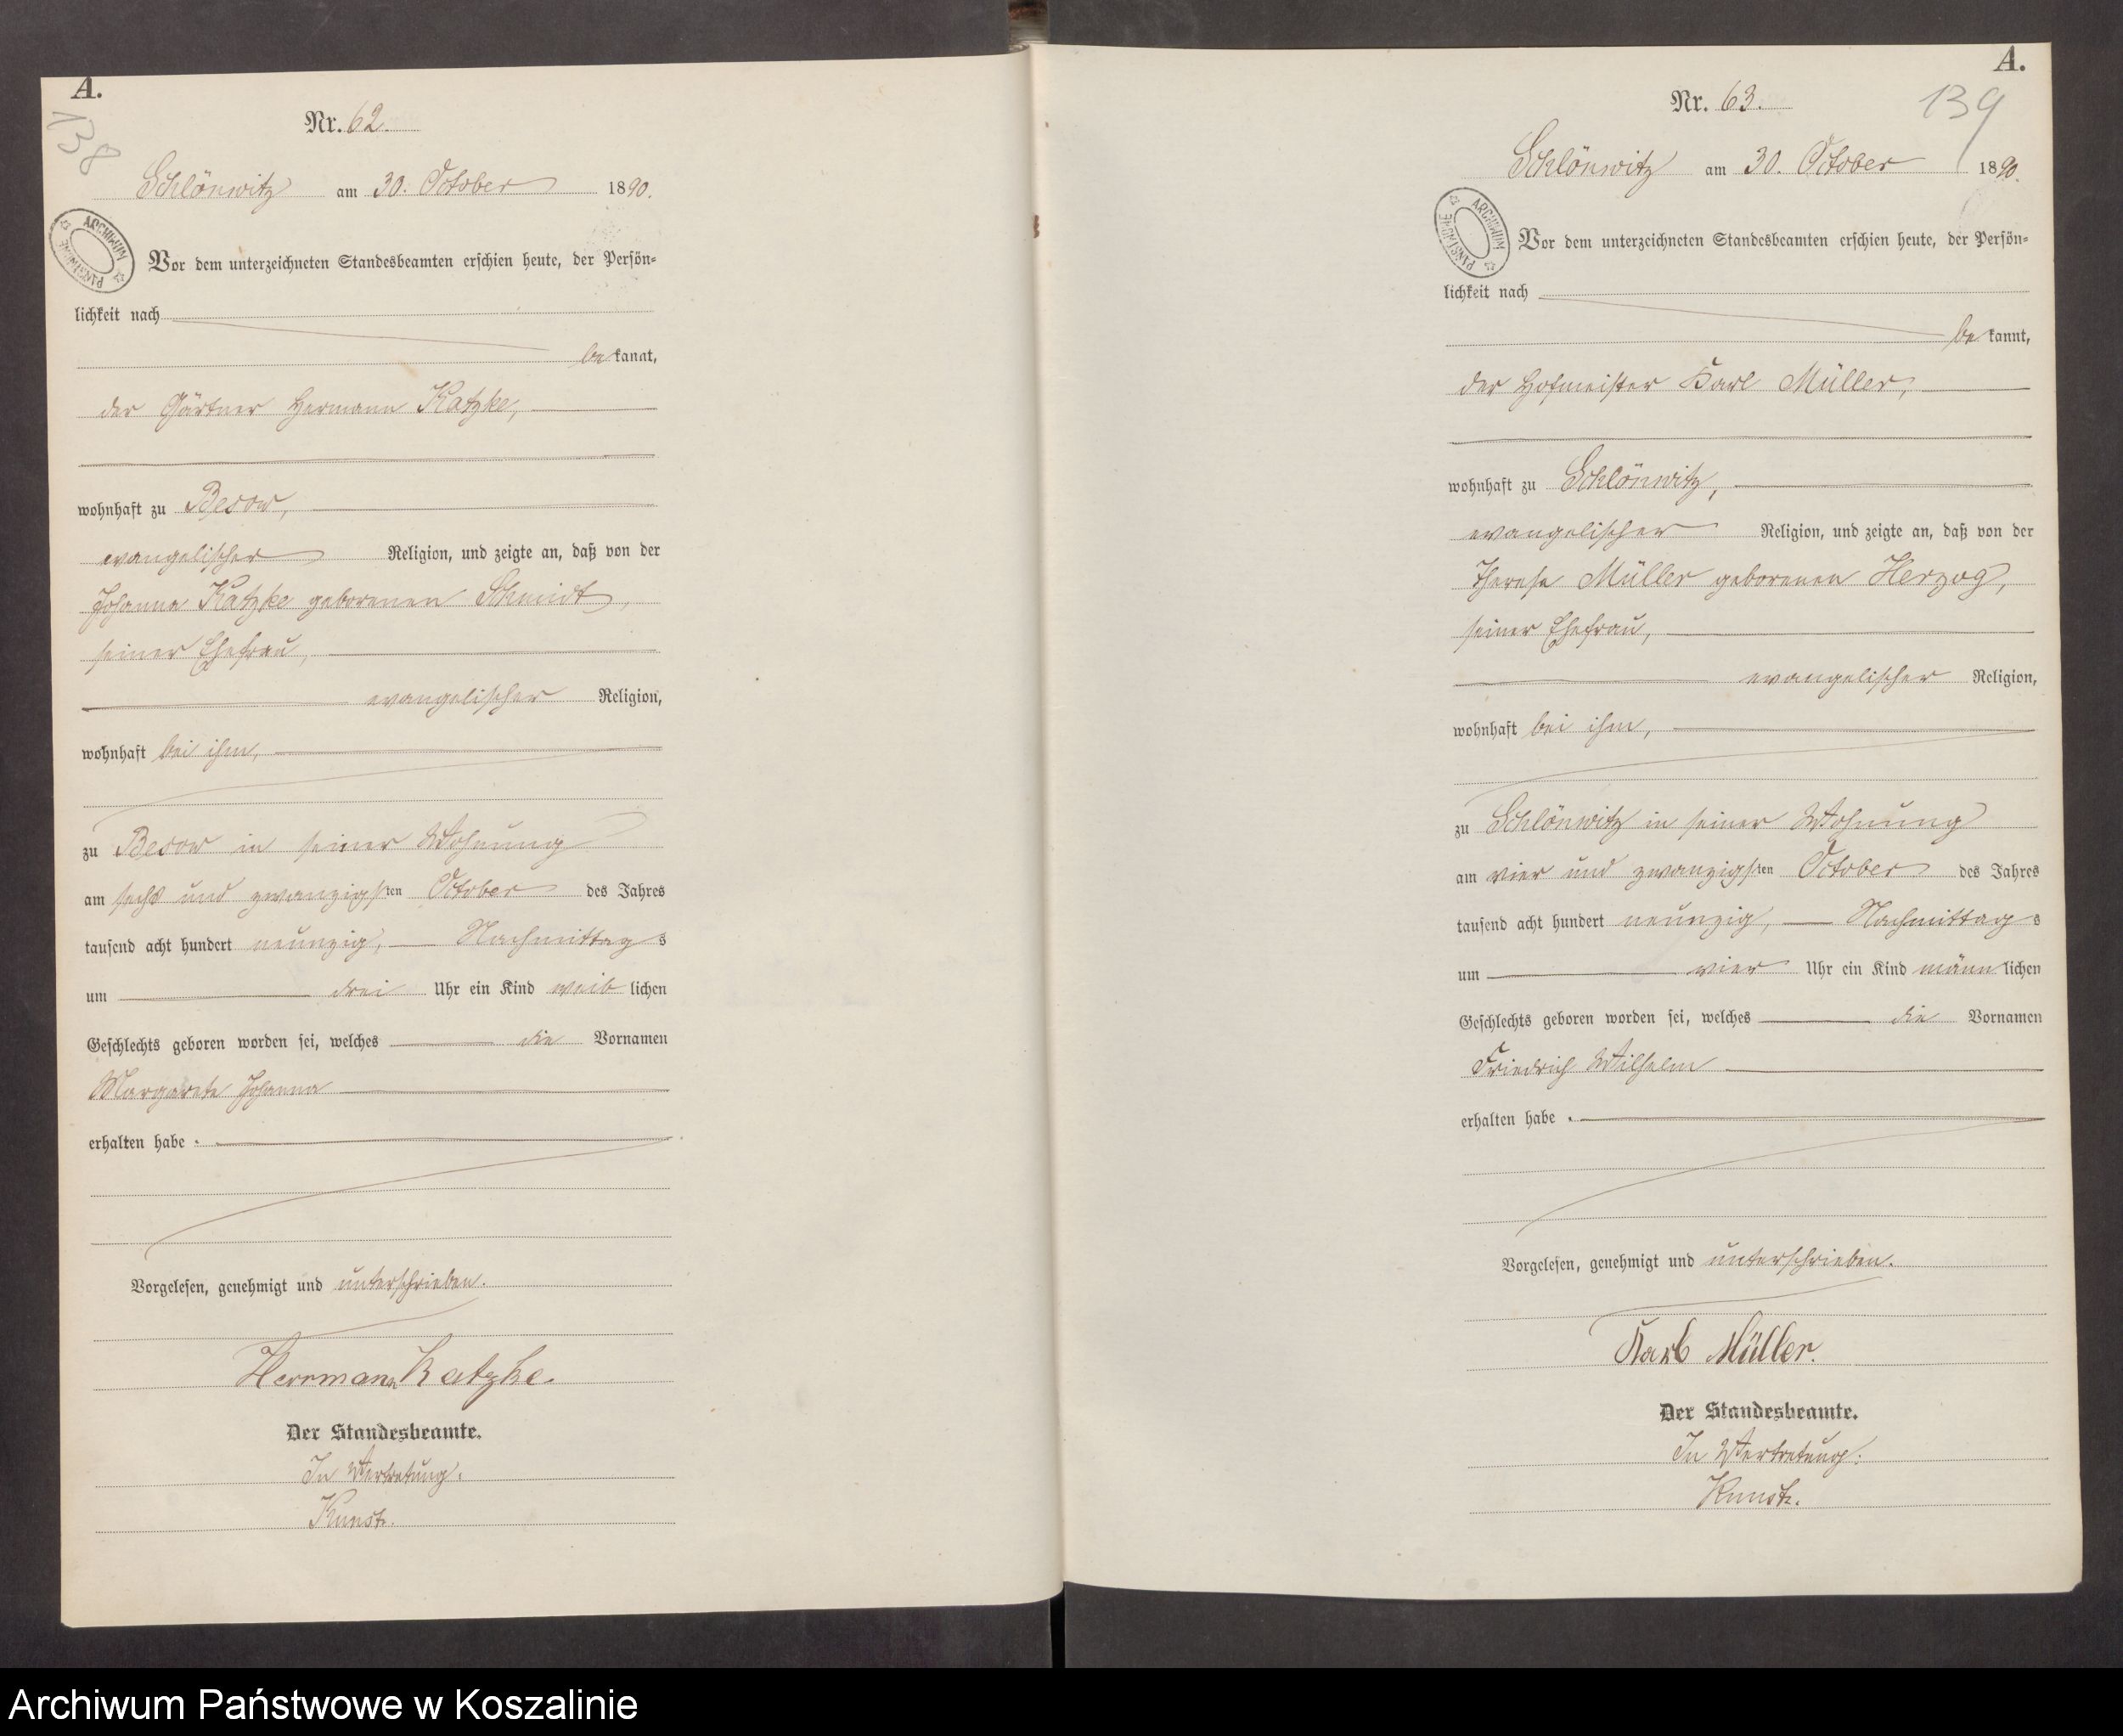 A.
138
Nr. 62.
Schlönwitz am 30. October 1890.
ARCHIWUM PAŃSTWOWE
Vor dem unterzeichneten Standesbeamten erschien heute, der Persön-
lichkeit nach
bekannt,
der Gärtner Hermann Katzke,
wohnhaft zu Besow,
evangelischer Religion, und zeigte an, daß von der
Johanna Katzke geborenen Schmidt,
seiner Ehefrau,
evangelischer Religion,
wohnhaft bei ihm,
zu Besow in seiner Wohnung
am sechs und zwanzigsten October des Jahres
tausend acht hundert neunzig, Nachmittags
um drei Uhr ein Kind weiblichen
Geschlechts geboren worden sei, welches die Vornamen
Margarete Johanna
erhalten habe.
Vorgelesen, genehmigt und unterschrieben.
Herrmann Katzke.
Der Standesbeamte.
In Vertretung:
Kunst.
A.
139
Nr. 63.
Schlönwitz am 30. October 1890.
ARCHIWUM PAŃSTWOWE
Vor dem unterzeichneten Standesbeamten erschien heute, der Persön-
lichkeit nach
bekannt,
der Hofmeister Karl Müller,
wohnhaft zu Schlönwitz,
evangelischer Religion, und zeigte an, daß von der
Therese Müller geborenen Herzog,
seiner Ehefrau,
evangelischer Religion,
wohnhaft bei ihm,
zu Schlönwitz in seiner Wohnung
am vier und zwanzigsten October des Jahres
tausend acht hundert neunzig, Nachmittags
um vier Uhr ein Kind männlichen
Geschlechts geboren worden sei, welches die Vornamen
Friedrich Wilhelm
erhalten habe.
Vorgelesen, genehmigt und unterschrieben.
Karl Müller.
Der Standesbeamte.
In Vertretung:
Kunst.
Archiwum Państwowe w Koszalinie